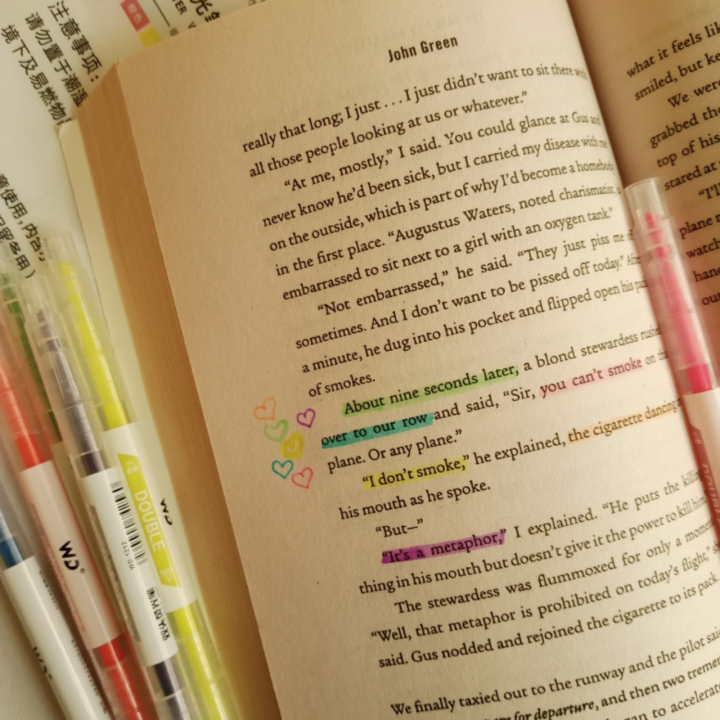 注意事项:
请勿置于潮湿
境下及易燃物
John Green
really that long, I just . . . I just didn't want to sit there with
all those people looking at us or whatever."
"At me, mostly," I said. You could glance at Gus and
never know he'd been sick, but I carried my disease with me
on the outside, which is part of why I'd become a homebody
in the first place. "Augustus Waters, noted charismatist,
embarrassed to sit next to a girl with an oxygen tank."
"Not embarrassed," he said. "They just piss me
sometimes. And I don't want to be pissed off today." After
a minute, he dug into his pocket and flipped open his
of smokes.
About nine seconds later, a blond stewardess rushed
over to our row and said, "Sir, you can't smoke on
plane. Or any plane."
"I don't smoke," he explained, the cigarette dancing
his mouth as he spoke.
"But—"
"It's a metaphor," I explained. "He puts the killing
thing in his mouth but doesn't give it the power to kill
The stewardess was flummoxed for only a moment.
"Well, that metaphor is prohibited on today's flight,"
said. Gus nodded and rejoined the cigarette to its pack.
We finally taxied out to the runway and the pilot said,
for departure, and then two
to accelerate
what it feels
smiled, but
We were
grabbed the
top of his
stared at
"I'll
plane
WD
WD
DOUBLE